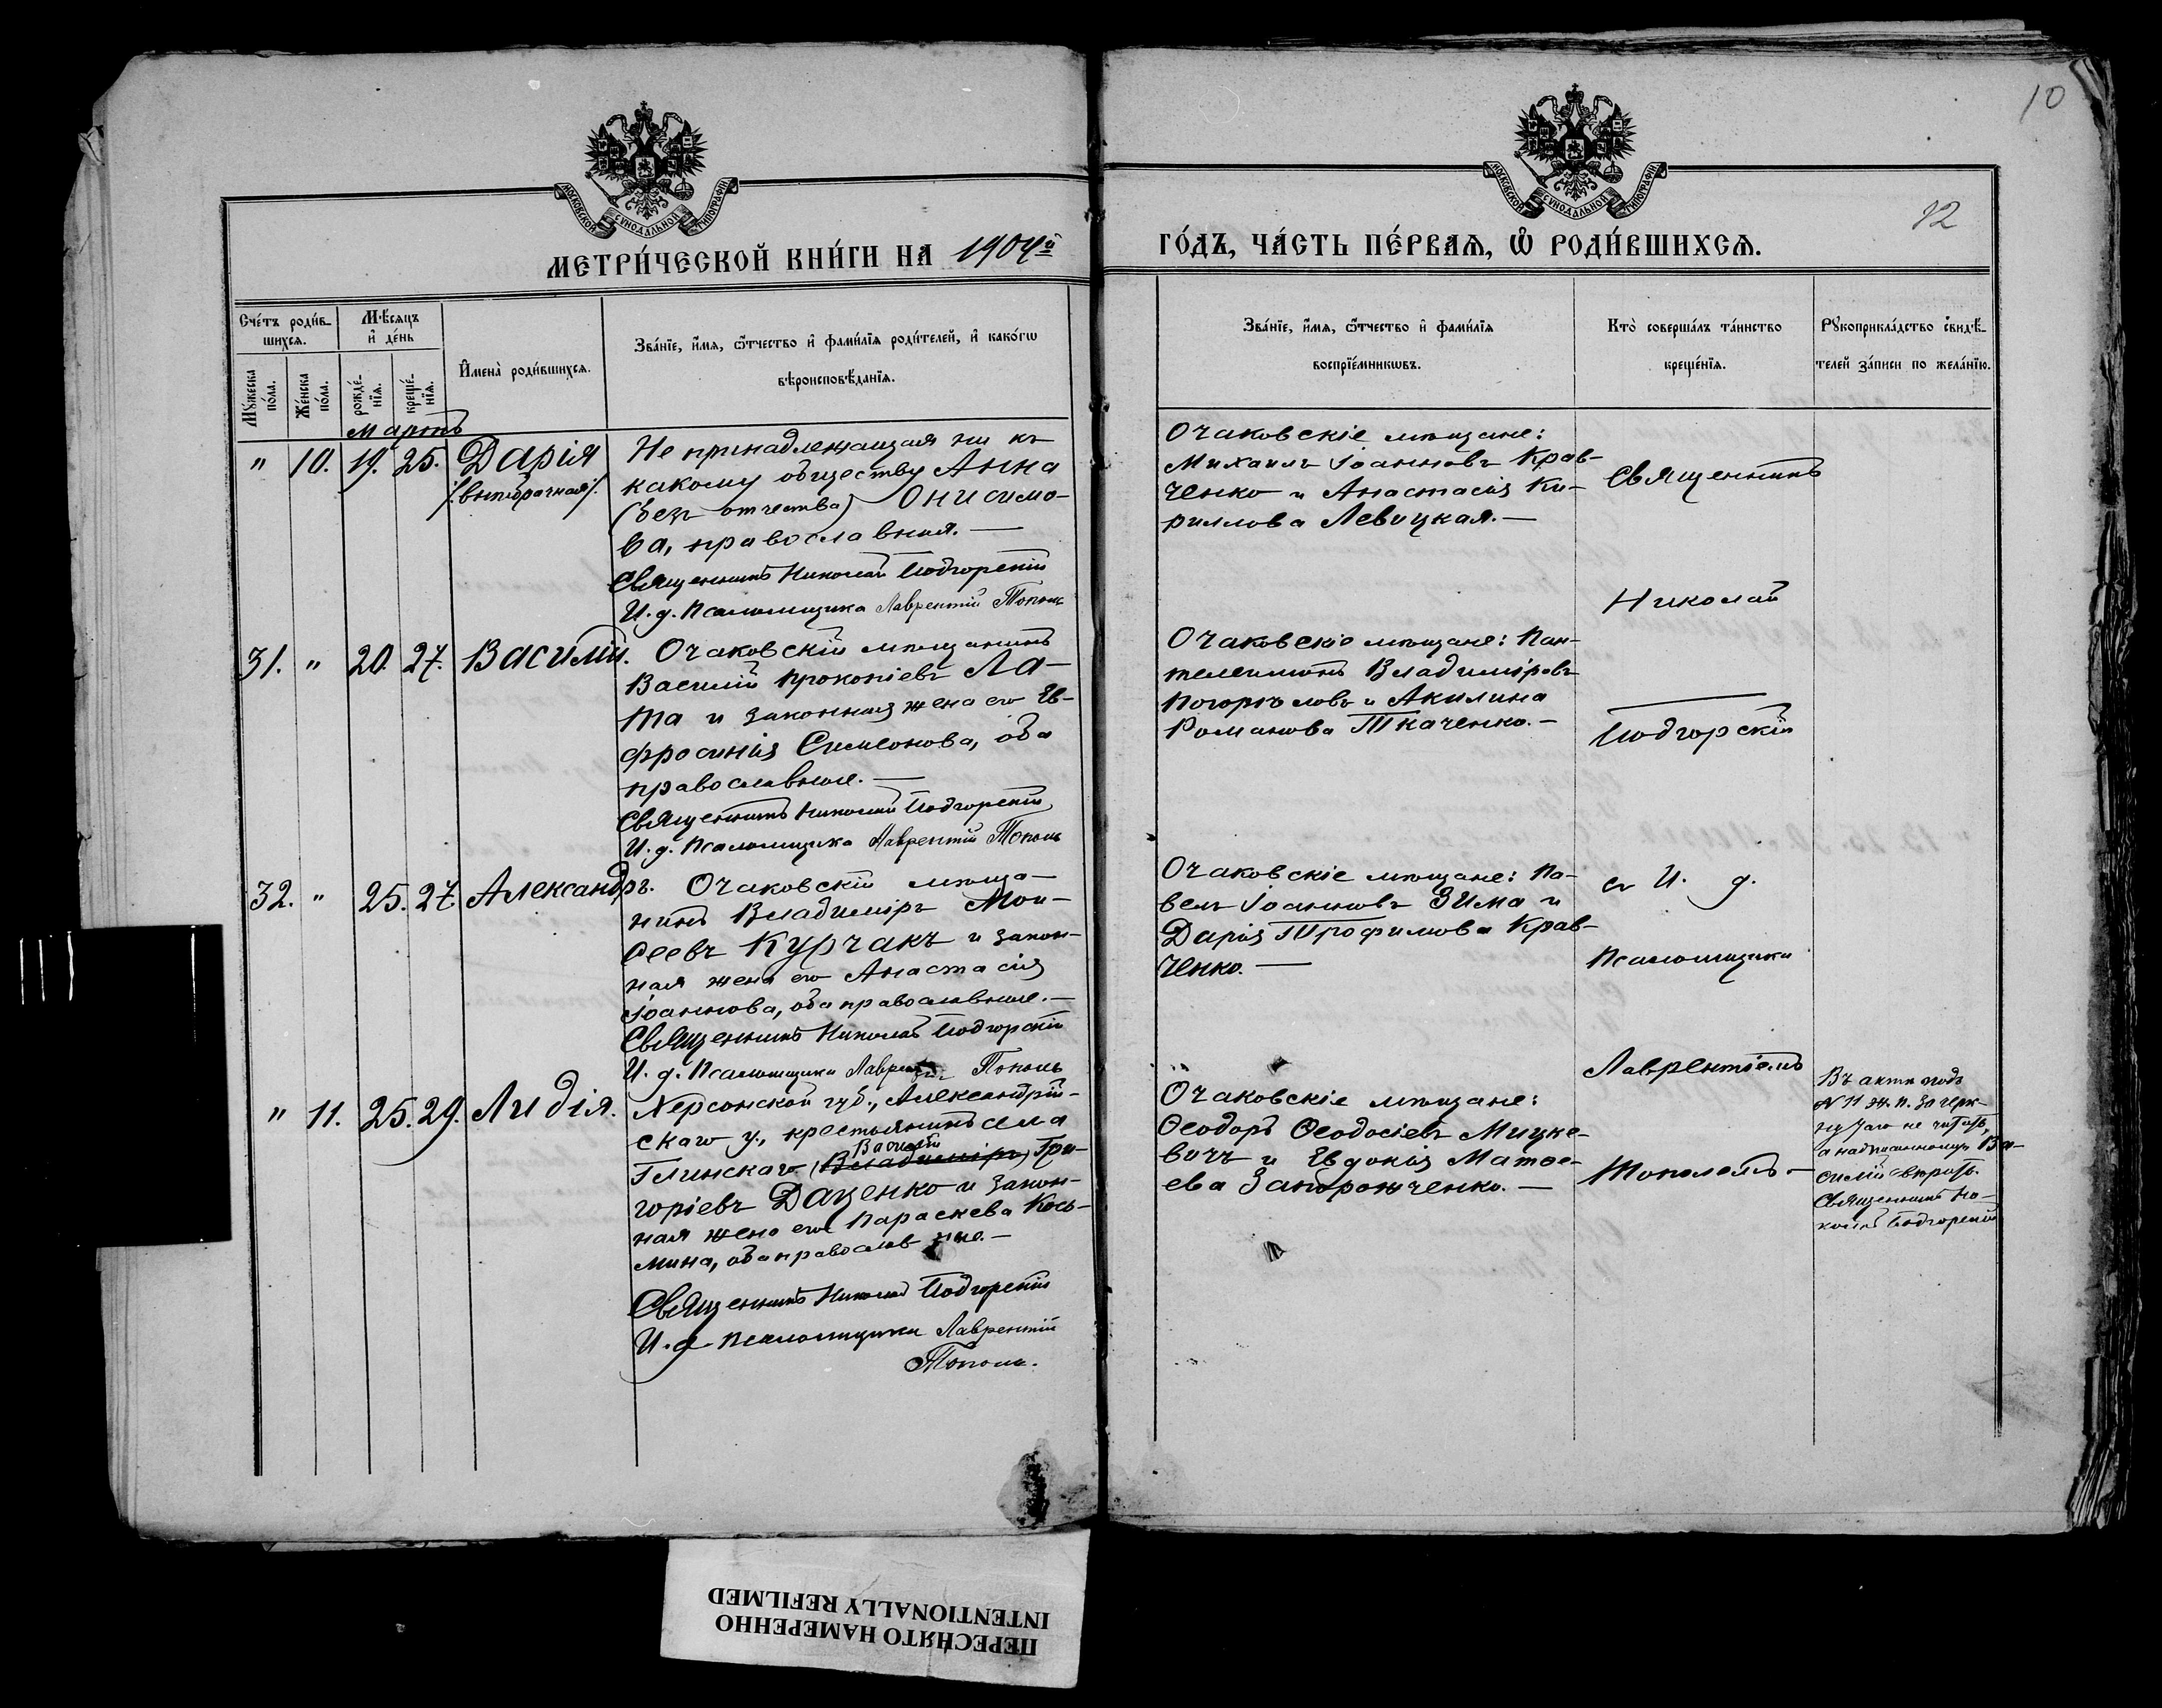 10
12
МОСКОВСКОЙ СѴНОДАЛЬНОЙ ТИПОГРАФІИ
МОСКОВСКОЙ СѴНОДАЛЬНОЙ ТИПОГРАФІИ
МЕТРИ́ЧЕСКОЙ КНИ́ГИ НА 1904й
ГО́ДЪ, ЧА́СТЬ ПЕ́РВАЯ, Ѡ РОДИ́ВШИХСЯ.
Сче́тъ роди́в-
шихся.
Мꙋжеска
по́ла.
Же́нска
по́ла.
Мѣ́сяцъ
и де́нь
рожде́-
нїя.
креще́-
нїя.
Имена̀ роди́вшихся.
Зва́нїе, и́мя, ѻ́тчество и фами́лїя роди́телей, и како́гѡ
вѣроисповѣ́данїя.
Зва́нїе, и́мя, ѻ́тчество и фами́лїя
воспрїе́мникѡвъ.
Кто̀ соверша́лъ та́инство
креще́нїя.
Рꙋкоприкла́дство свидѣ́-
телей за́писи по жела́нїю.
Мартъ
" 10. 19. 25. Дарія
/внѣбрачная/.
Не принадлежащая ни къ
какому обществу Анна
(безъ отчества) Онисимо-
ва, православная. —
Священникъ Николай Подгорскій
И. д. Псаломщика Лаврентій Тополь
Очаковскіе мѣщане:
Михаилъ Іоанновъ Крав-
ченко и Анастасія Ки-
риллова Левицкая. —
Священникъ
Николай
Подгорскій
31. " 20. 27. Василій.
Очаковскій мѣщанинъ
Василій Прокопіевъ Ла-
та и законная жена его Ев-
фросинія Симеонова, оба
православные. —
Священникъ Николай Подгорскій
И. д. Псаломщика Лаврентій Тополь
Очаковскіе мѣщане: Пан-
телеимонъ Владиміровъ
Погорѣловъ и Акилина
Романова Ткаченко. —
32. " 25. 27 Александръ.
Очаковскій мѣща-
нинъ Владиміръ Мои-
сеевъ Курчакъ и закон-
ная жена его Анастасія
Іоаннова, оба православные. —
Священникъ Николай Подгорскій
И. д. Псаломщика Лаврентій Тополь
Очаковскіе мѣщане: Па-
велъ Іоанновъ Зима и
Дарія Трофимова Крав-
ченко. —
съ И. д.
Псаломщика
Лаврентіемъ
Тополемъ —
" 11. 25. 29. Лидія.
Херсонской губ., Александрій-
скаго у., крестьянинъ села
Василій
Глинскаго, (Владиміръ) Гри-
горіевъ Даценко и закон-
ная жена его Параскева Кось-
мина, оба православные. —
Священникъ Николай Подгорскій
И. д. Псаломщика Лаврентій
Тополь.
Очаковскіе мѣщане:
Ѳеодоръ Ѳеодосіевъ Мицке-
вичъ и Евдокія Матѳе-
ева Запорожченко. —
Въ актѣ подъ
N 11 ж. п. зачерк-
нутаго не читать,
а надписанному Ва-
силій вѣрить.
Священникъ Ни-
колай Подгорскій
ПЕРЕСНЯТО НАМЕРЕННО
INTENTIONALLY REFILMED